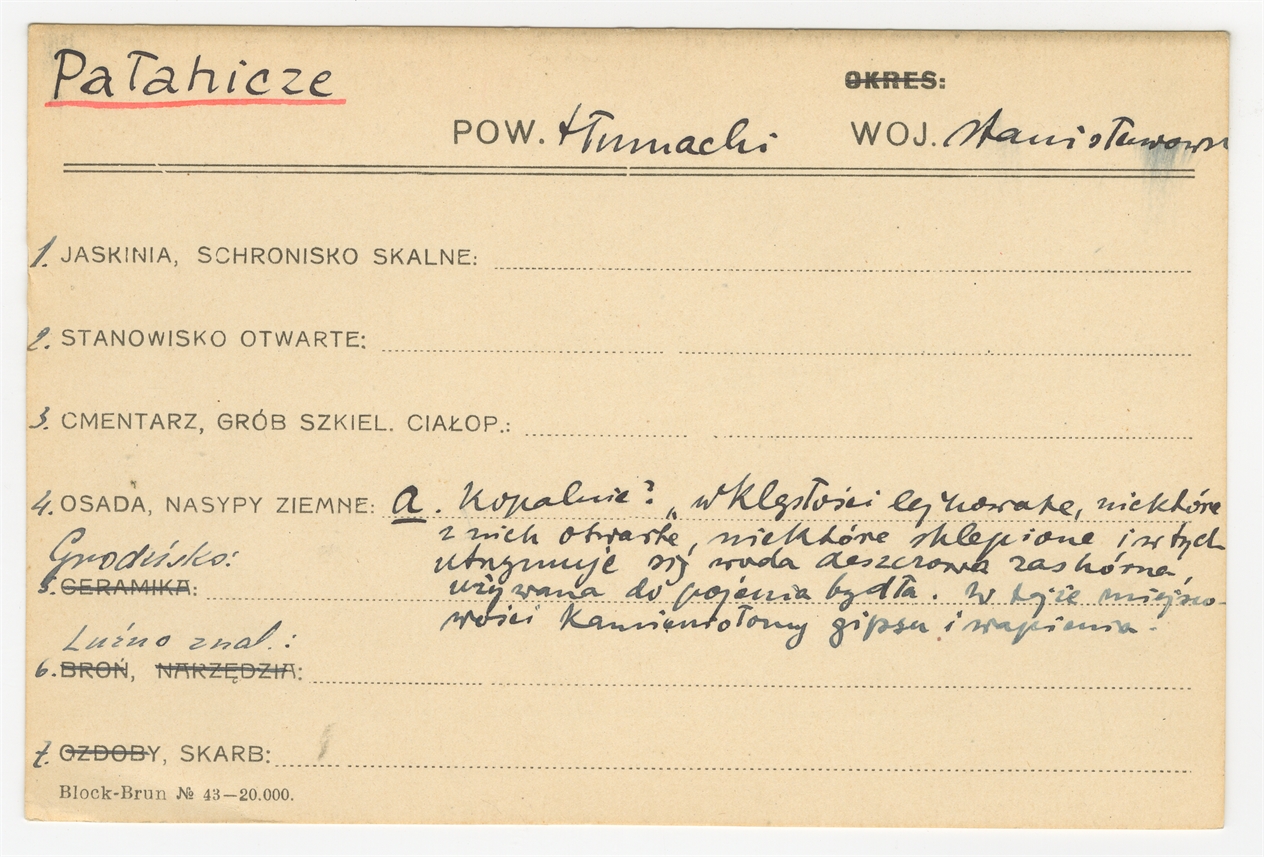 Pałahicze
OKRES:
POW. tłumacki WOJ. stanisławows
1. JASKINIA, SCHRONISKO SKALNE:
2. STANOWISKO OTWARTE:
3. CMENTARZ, GRÓB SZKIEL. CIAŁOP.:
4. OSADA, NASYPY ZIEMNE: a. Kopalnie? „wklęsłości lejkowate, niektóre
z nich otwarte, niektóre sklepione i w tych
utrzymuje się woda deszczowa zaskórna,
Grodzisko:
5. CERAMIKA: używana do pojenia bydła. W tejże miejsco-
wości kamieniołomy gipsu i wapienia.
Luźno znal.:
6. BROŃ, NARZĘDZIA:
7. OZDOBY, SKARB:
Block-Brun № 43—20.000.